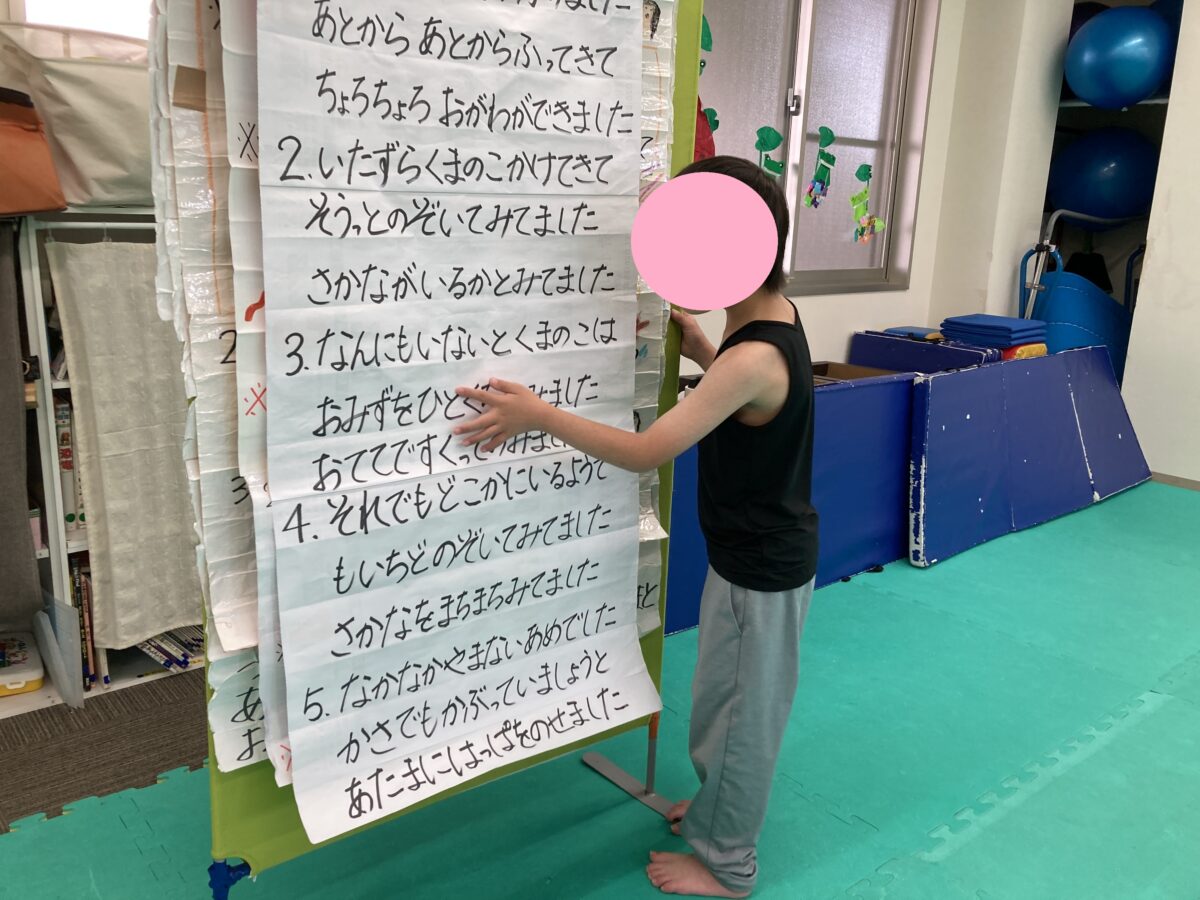 ました
あとから あとからふってきて
ちょろちょろ おがわができました
2.いたずらくまのこかけてきて
そうっとのぞいてみてました
さかながいるかとみてました
3.なんにもいないとくまのこは
おみずをひとく みました
おててですくってのみました
4.それでもどこかにいるようで
もいちどのぞいてみてました
さかなをまちまちみてました
5.なかなかやまないあめでした
かさでもかぶっていましょうと
あたまにはっぱをのせました
※
2
※
3